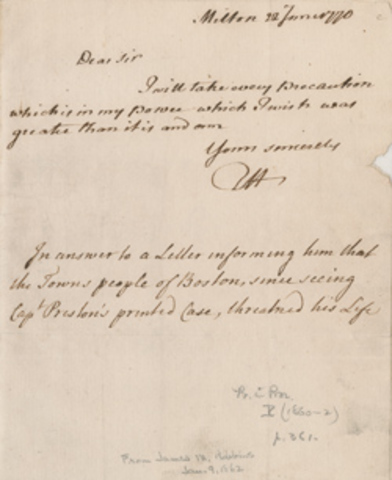 Milton 22 June 1770
Dear Sir
I will take every Precaution
which is in my Power which I wish was
greater than it is and am
Yours sincerely
TH
In answer to a Letter informing him that
the Towns people of Boston, since seeing
Capt Preston's printed Case, threatned his Life
(1860-2)
p. 361.
From James M. Robbins
Jan. 9, 1862